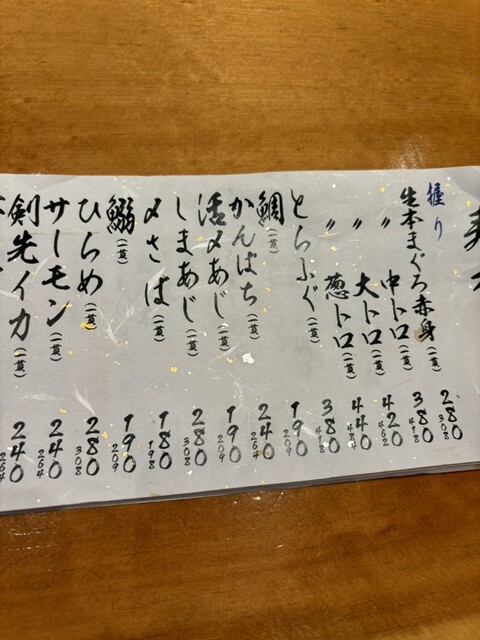 握り
生本まぐろ赤身(一貫) 280 308
〃 中トロ(一貫) 380 418
〃 大トロ(一貫) 420 462
〃 葱トロ(一貫) 440 484
とらふぐ(一貫) 380 418
鯛(一貫) 190 209
かんぱち(一貫) 240 264
活〆あじ(一貫) 190 209
しまあじ(一貫) 280 308
〆さば(一貫) 180 198
鰯(一貫) 190 209
ひらめ(一貫) 280 308
サーモン(一貫) 240 264
剣先イカ(一貫) 240 264